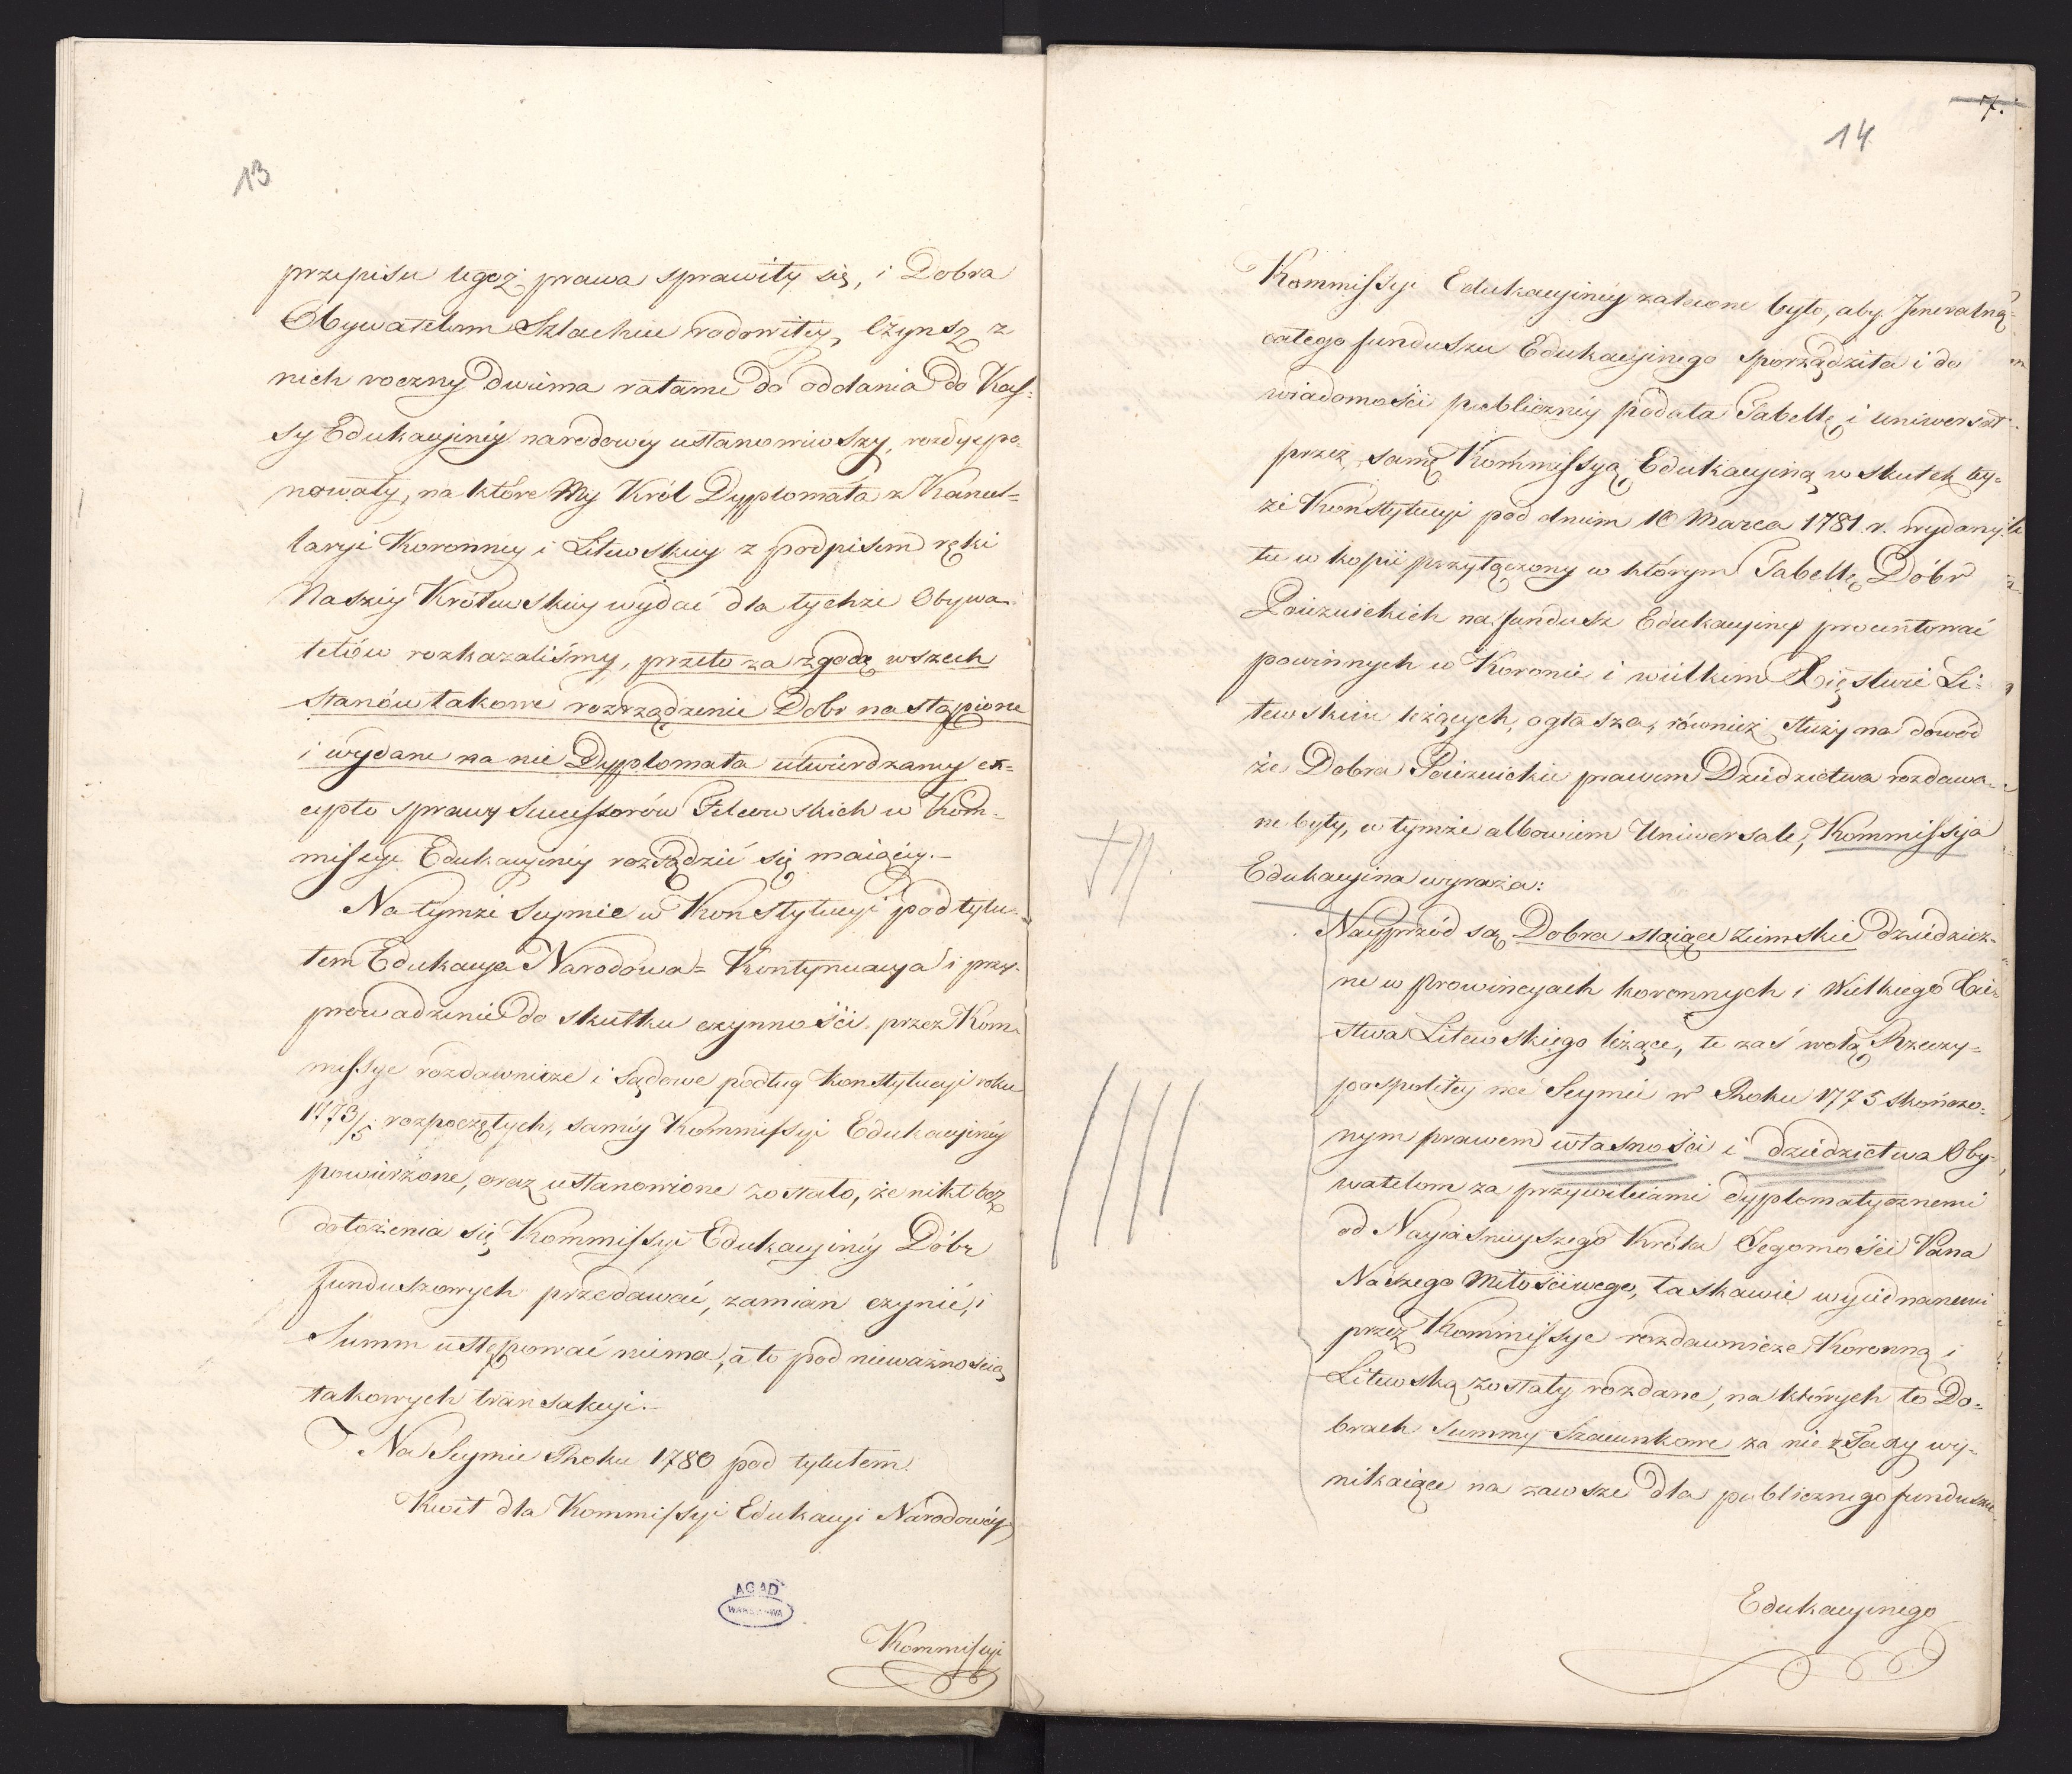 13
przepisu tegoż prawa sprawiły się, i Dobra
Obywatelom Szlachcie rodowitey, Czynsz z
nich roczny dwiema ratami do oddania do Kas=
sy Edukacyiney narodowéy ustanowiwszy, rozdyspo=
nowały, na które My Król Dyplomata z Kancel=
laryi Koronnéy i Litewskiéy z podpisem ręki
Naszéy Królewskiéy wydać dla tychże Obywa=
telów rozkazaliśmy, przeto za zgodą wszech
stanów takowe rozrządzenie Dobr nastąpione
i wydane na nie Dypplomata utwierdzamy ex=
cypto sprawy Successorów Felcowskich w Kom=
missyi Edukacyinéy rozsądzić się maiącéy.—
Na tymże Seymie w Konstytucyi pod tytu=
tem Edukacya Narodowa= Kontynuacya i przy=
prowadzenie do skutku czynności przez Kom=
missye rozdawnicze i Sądowe podług Konstytucyi roku
1773/5 rozpoczętych, saméy Kommissyi Edukacyinéy
powierzone, oraz ustanowione zostało, że nikt bez
dołożenia się Kommissyi Edukacyinéy Dóbr
funduszowych przedawać, zamian czynić, i
Summ ustępować niema, a to pod nieważnością
takowych transakcyi.—
Na Seymie Roku 1780 pod tytułem.
Kwit dla Kommissyi Edukacyi Narodowéy
AGAD
WARSZAWA
Kommissyi
7.
14
Kommissyi Edukacyinéy zalecone było, aby Jeneralną
całego funduszu Edukacyinego sporządziła i do
wiadomości publicznéy podała Tabellę, i uniwersał
przez samę Kommissyą Edukacyiną w skutek tey=
że Konstytucyi pod dniem 10 Marca 1781 r. wydany
tu w kopii przyłączony w którym Tabellę Dóbr
Poiezuickich na fundusz Edukacyiny procentować
powinnych w Koronie i wielkim Xięstwie Li=
tewskim leżących, ogłasza, również służy na dowód
że Dobra Poiezuickie prawem Dziedzictwa rozdawa=
ne były, w tymże albowiem Uniwersale, Kommissyia
Edukacyina wyraża:
Nayprzód są Dobra staiące ziemskie Dziedzicz=
ne w prowincyach koronnych i Wielkiego Xię=
stwa Litewskiego leżące, te zaś wolą Rzeczy=
pospolitey na Seymie w Roku 1775 skończo=
nym prawem własności i dziedzictwa Oby=
watelom za przywileiami dyplomatycznemi
od Nayiaśnieyszego Króla Jegomości Pana
Naszego Miłościwego, łaskawie wyiednanemi
przez Kommissye rozdawnicze Koronną i
Litewską zostały rozdane, na których to Do=
brach Summy Szacunkowe za nie z Taxy wy=
nikaiące na zawsze dla publicznego funduszu
Edukacyinego